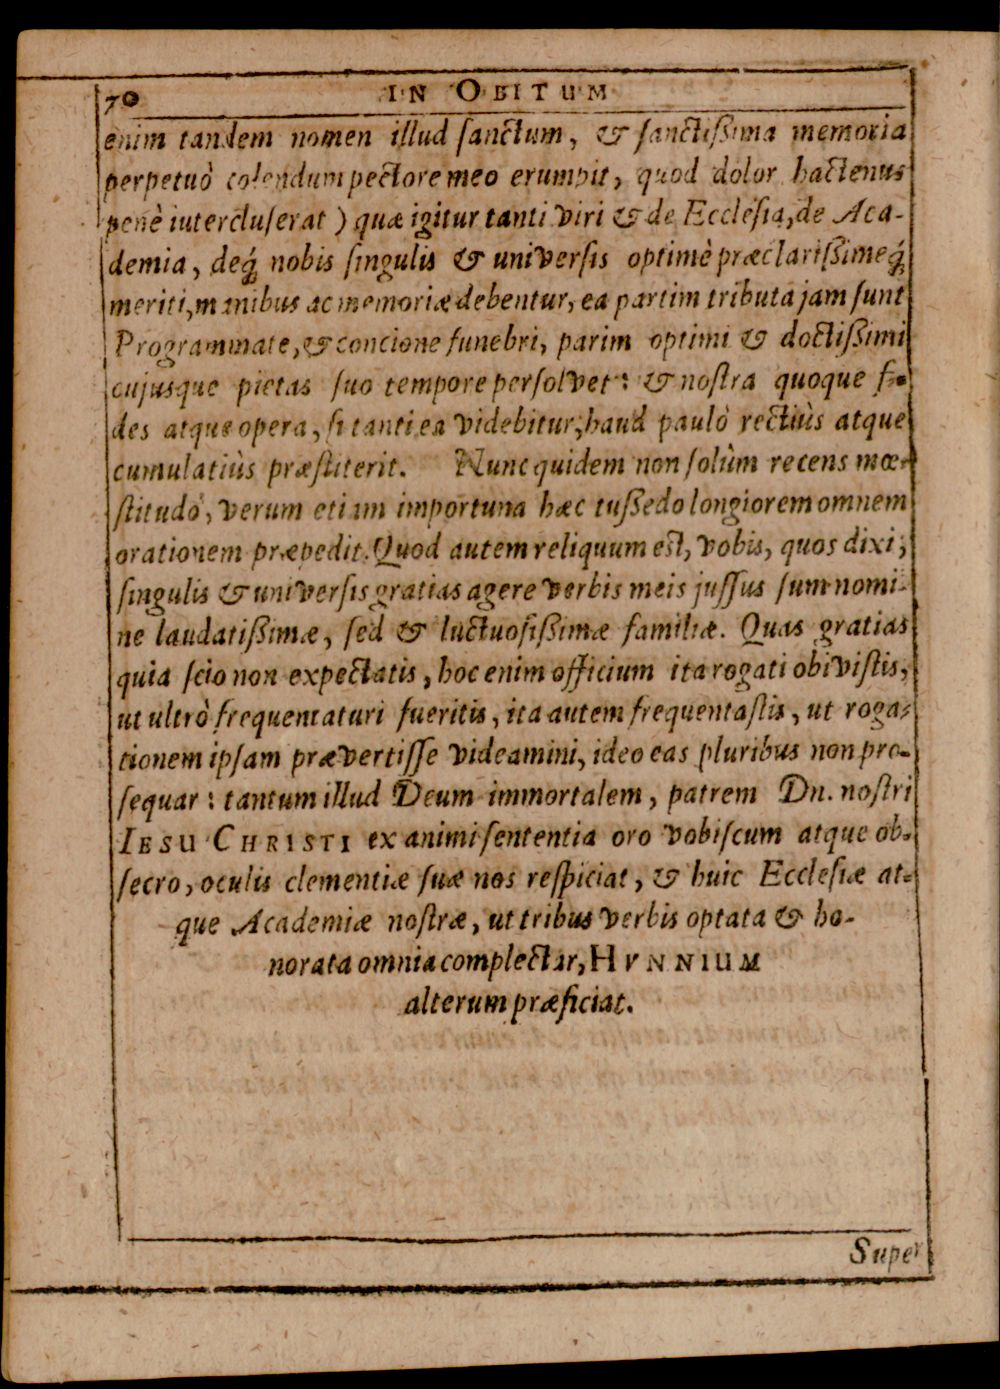 70 IN OBITUM
enim tandem nomen illud ſanctum, & ſanctiſsima memoria
perpetuò colendum pectore meo erumpit, quod dolor hactenus
penè iutercluſerat ) quæ igitur tanti viri & de Eccleſia, de Aca-
demia, deq́; nobis ſingulis & univerſis optimè præclariſsimeq́;
meriti, manibus ac memoriæ debentur, ea partim tributa jam ſunt
Programmate, & concione funebri, parim optimi & doctiſsimi
cujusque pietas ſuo tempore perſolvet: & noſtra quoque fi-
des atque opera, ſi tanti ea videbitur, haud paulò rectiùs atque
cumulatiùs præſtiterit. Nunc quidem non ſolùm recens mœ-
ſtitudo, verum etiam importuna hæc tuſsedo longiorem omnem
orationem præpedit. Quod autem reliquum eſt, vobis, quos dixi,
ſingulis & univerſis gratias agere verbis meis juſſus ſum nomi-
ne laudatiſsimæ, ſed & luctuoſiſsimæ familiæ. Quas gratias
quia ſcio non expectatis, hoc enim officium ita rogati obiviſtis,
ut ultrò frequentaturi fueritis, ita autem frequentaſtis, ut roga-
tionem ipſam prævertiſſe videamini, ideo eas pluribus non pro-
ſequar: tantum illud Deum immortalem, patrem Dn. noſtri
IESU CHRISTI ex animi ſententia oro vobiſcum atque ob-
ſecro, oculis clementiæ ſuæ nos reſpiciat, & huic Eccleſiæ at-
que Academiæ noſtræ, ut tribus verbis optata & ho-
norata omnia complectar, HVNNIUM
alterum præficiat.
Super